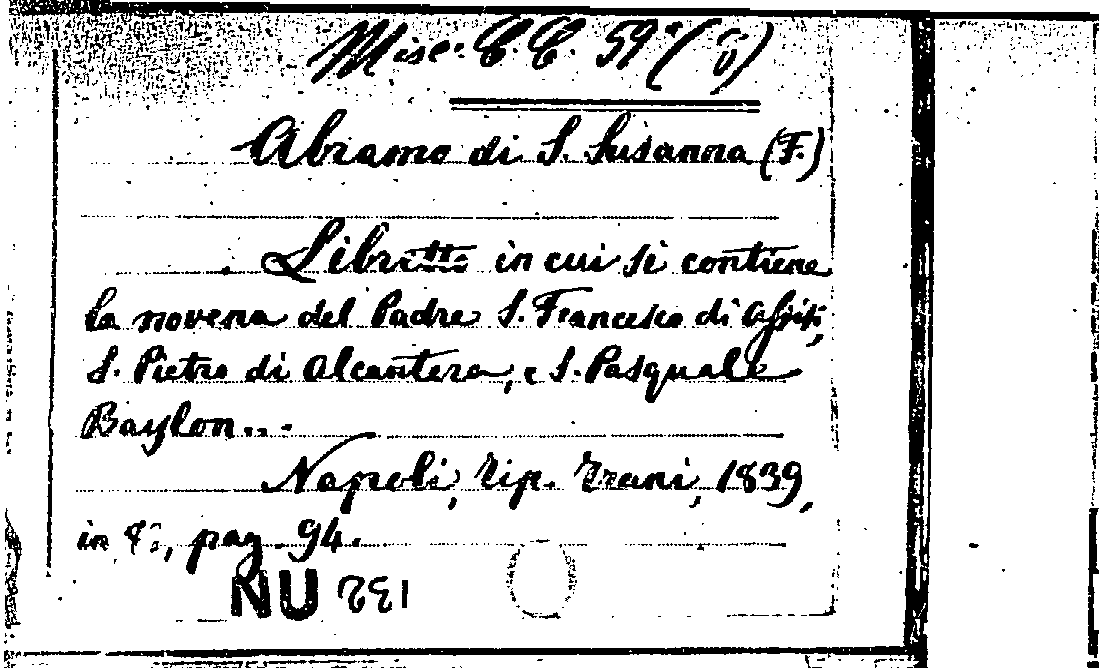 Misc. C. C. 59 (6)
Abramo di S. Susanna (F.)
Libretto in cui si contiene
la novena del Padre S. Francesco di Assisi,
S. Pietro di Alcantera, e S. Pasquale
Baylon...
Napoli, tip. Trani, 1839,
in 8°, pag. 94.
NU